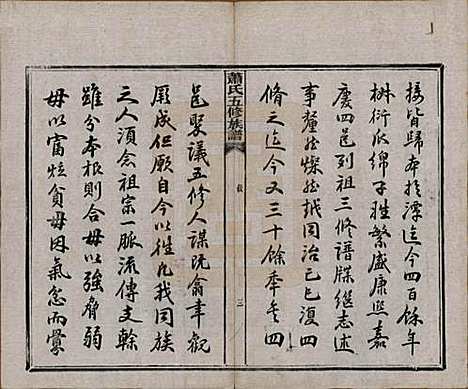 接皆歸本於潭迄今四百餘年
椒衍瓜綿子姓繁盛康熙嘉
慶四邑列祖三修譜牒繼志述
事釐然燦然越同治己巳復四
脩之迄今又三十餘年矣四
蕭氏五修族譜
三
邑聚議五修人謀既僉幸觀
厥成但願自今以往凡我同族
之人須念祖宗一脈流傳支幹
雖分本根則合毋以強脅弱
毋以富炫貧毋因氣忿而釁